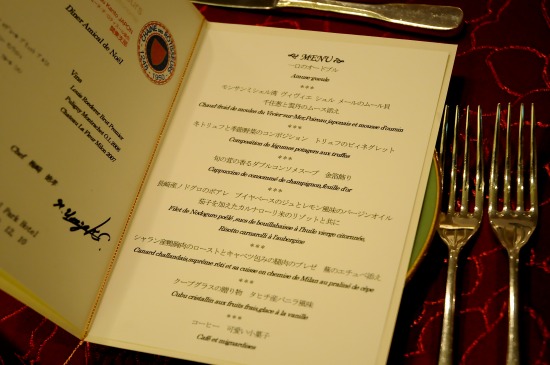 Dîner Amical de Noël
Vins
Louis Roederer Brut Premier
Puligny Montrachet
Chasse La Fleur Milon 2007
Chef
Park Hotel
12. 10
CHAINE DES ROTISSEURS
1950
MENU
一口のオードブル
Amuse gueule
***
モンサンミシェル湾 ヴィヴィエ シュル メールのムール貝
千住葱と雲丹のムース添え
Chaud froid de moules du Vivier-sur-Mer, Poireau japonais et mousse d'oursin
***
冬トリュフと季節野菜のコンポジション トリュフのヴィネグレット
Composition de légumes potagers aux truffes
***
旬の茸の香るダブルコンソメスープ 金箔飾り
Cappuccino de consommé de champignon, feuille d'or
***
長崎産ノドグロのポアレ ブイヤベースのジュとレモン風味のバージンオイル
茄子を加えたカルナローリ米のリゾットと共に
Filet de Nodoguro poêlé, sucs de bouillabaisse à l'huile vierge citronnée,
Risotto carnaroli à l'aubergine
***
シャラン産鴨胸肉のローストとキャベツ包みの腿肉のブレゼ 蕪のエチュベ添え
Canard challandais, suprême rôti et sa cuisse en chemise de Milan au praliné de cèpe
***
クープグラスの贈り物 タヒチ産バニラ風味
Cubu cristallin aux fruits frais, glace à la vanille
***
コーヒー 可愛い小菓子
Café et mignardises